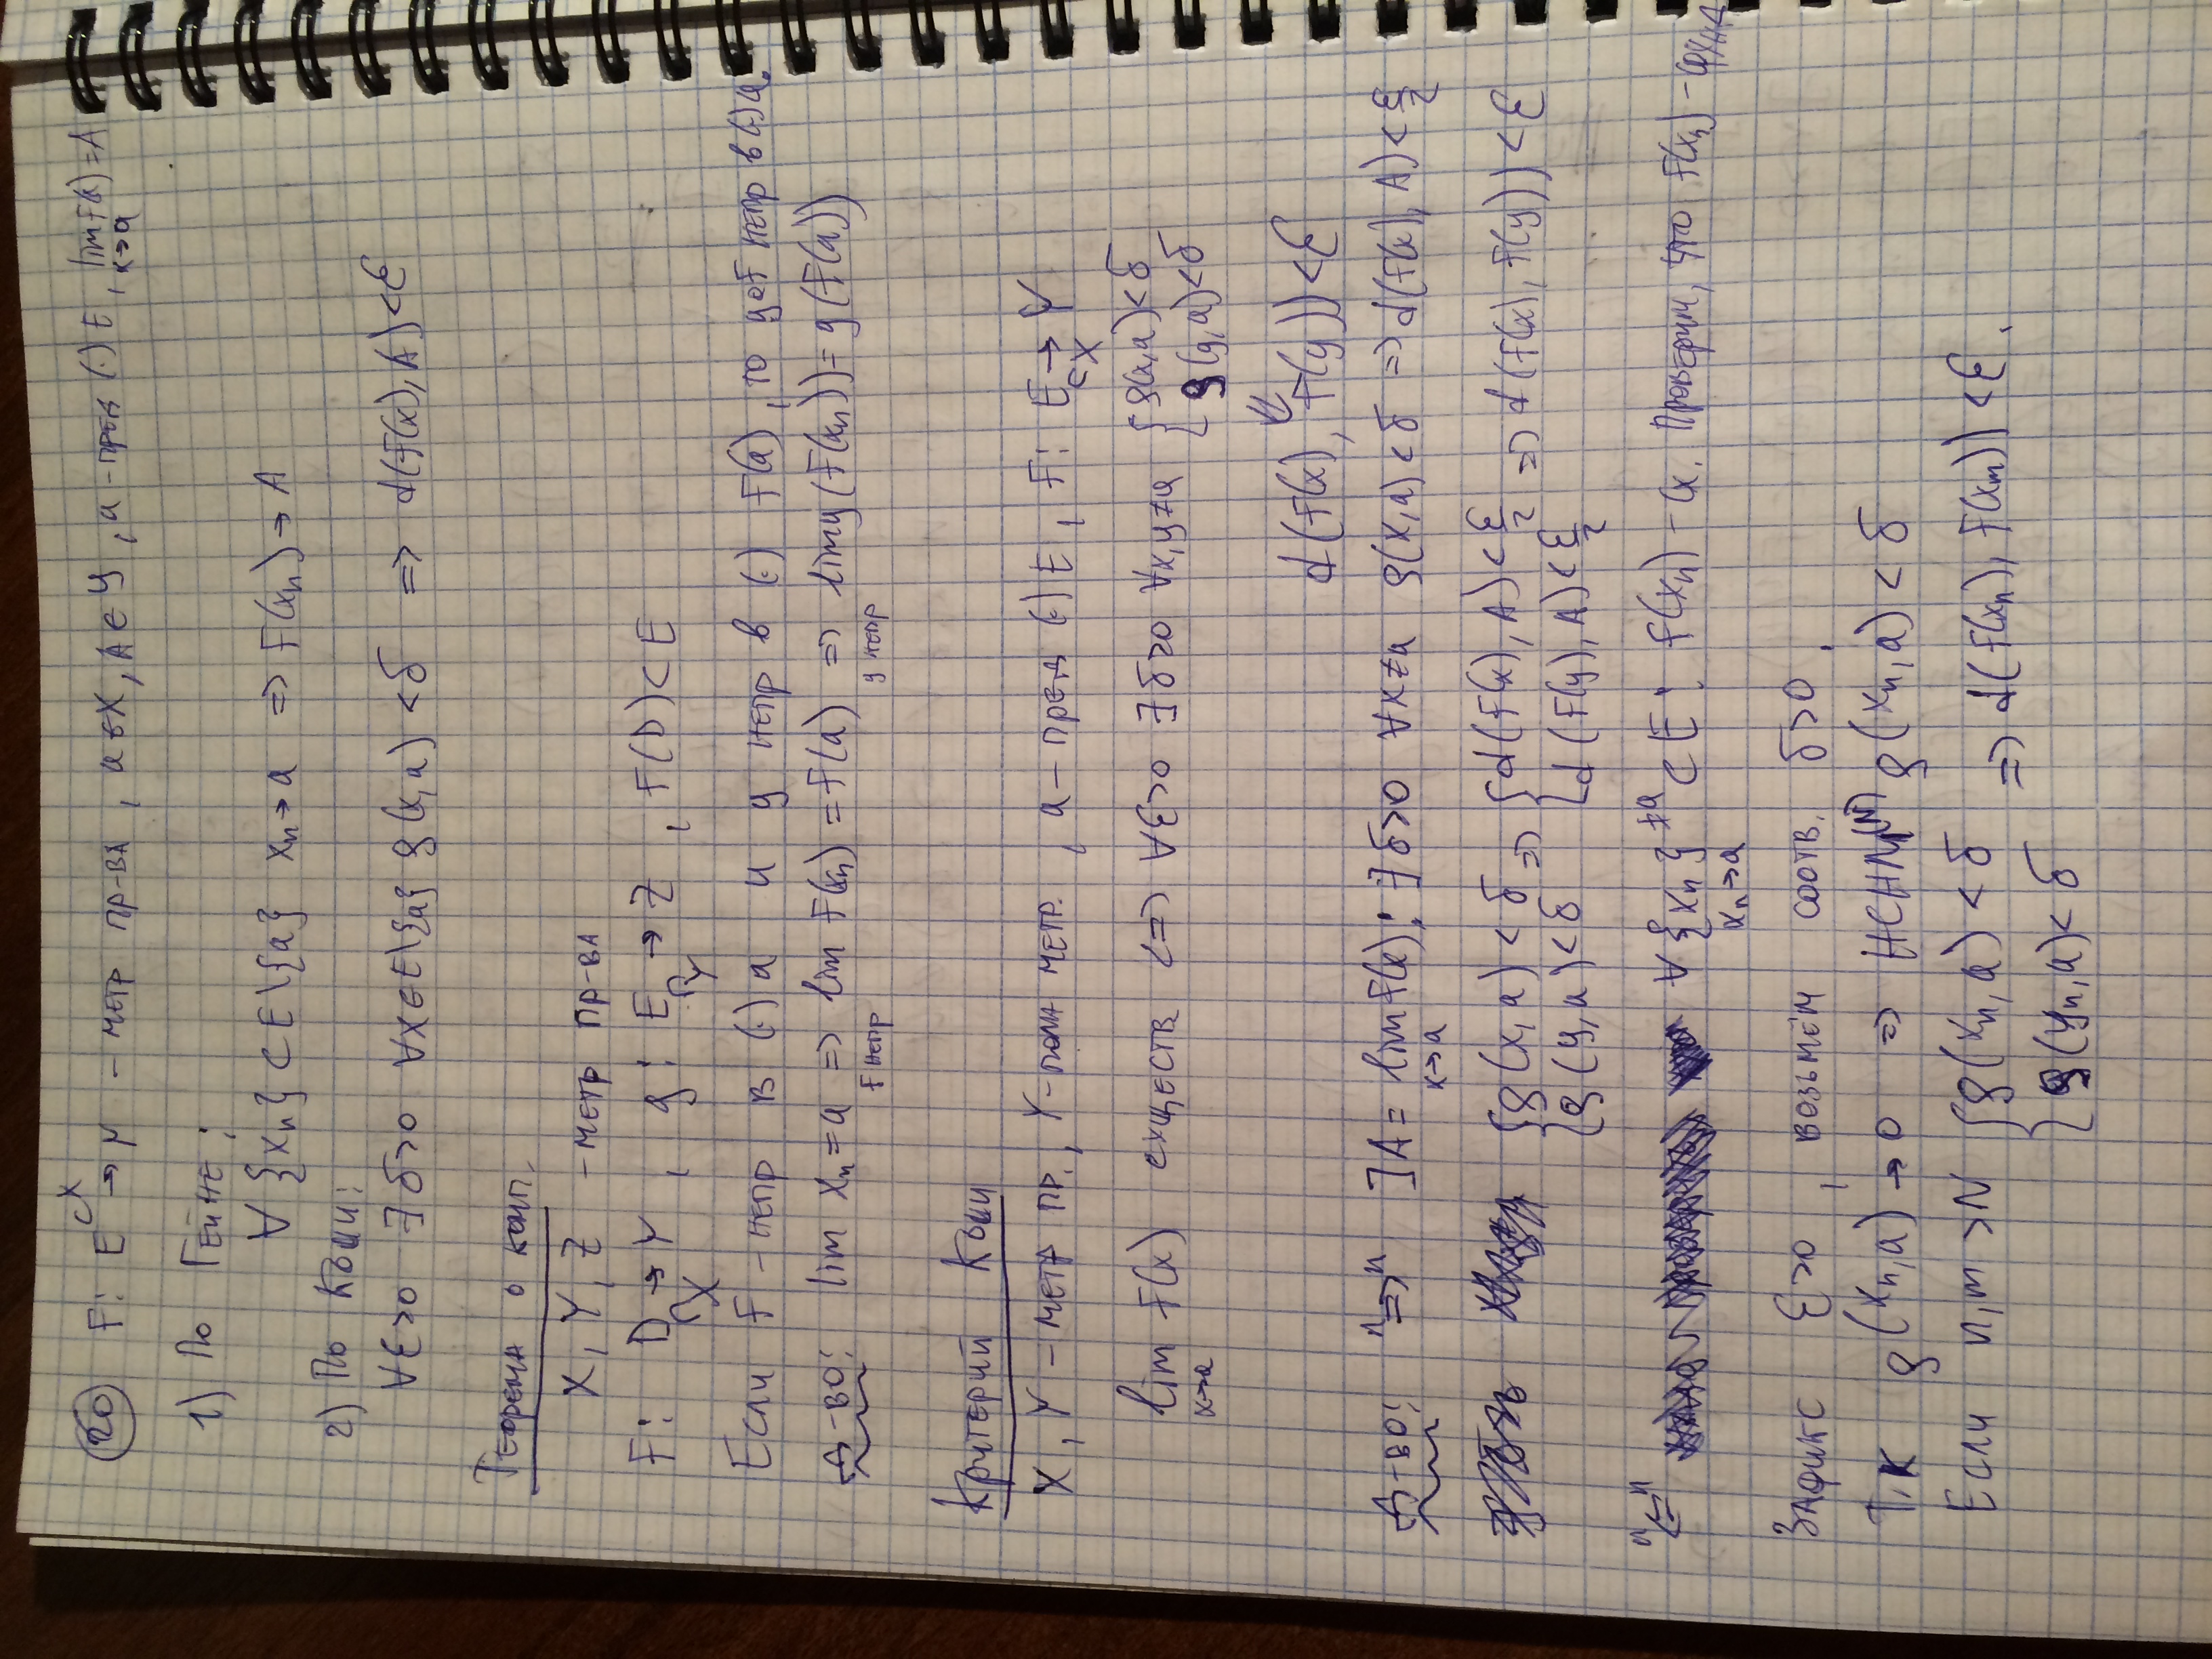 20 F: E ⊂X → Y – метр пр-ва, a∈X, A∈Y, a – пред (·) E, lim F(x) = A x→a
1) По Гейне:
∀ {xₙ} ⊂ E\{a} xₙ→a => F(xₙ)→A
2) По Коши:
∀ε>0 ∃δ>0 ∀x∈E\{a} ρ(x,a)<δ => d(F(x),A)<ε
Теорема о комп.
X, Y, Z – метр пр-ва
F: D → Y, g: E → Z, F(D)⊂E
∩X ∩Y
Если F – непр в (·) a и g непр в (·) F(a), то g∘F непр в (·) a.
Д-во: lim xₙ = a => lim F(xₙ) = F(a) => lim g(F(xₙ)) = g(F(a))
F непр g непр
Критерий Коши
X, Y – метр пр., Y – полн метр., a – пред (·) E, F: E → Y
⊂X
lim F(x) существ <=> ∀ε>0 ∃δ>0 ∀x,y≠a { ρ(x,a)<δ
x→a ρ(y,a)<δ
⇓
d(F(x), F(y))<ε
Д-во: "=>" ∃A = lim F(x): ∃δ>0 ∀x≠a ρ(x,a)<δ => d(F(x),A)<ε/2
x→a
{ ρ(x,a)<δ => { d(F(x),A)<ε/2 => d(F(x),F(y))<ε
ρ(y,a)<δ d(F(y),A)<ε/2
"<=" ∀ {xₙ} ≠a ⊂E: F(xₙ) – сх. Проверим, что F(xₙ) – фунд
xₙ→a
Зафикс ε>0, возьмём соотв. δ>0.
Т.к ρ(xₙ,a)→0 => НСНМ (N) ρ(xₙ,a)<δ
Если n,m >N { ρ(xₙ,a)<δ => d(F(xₙ), F(xₘ))<ε.
ρ(yₙ,a)<δ